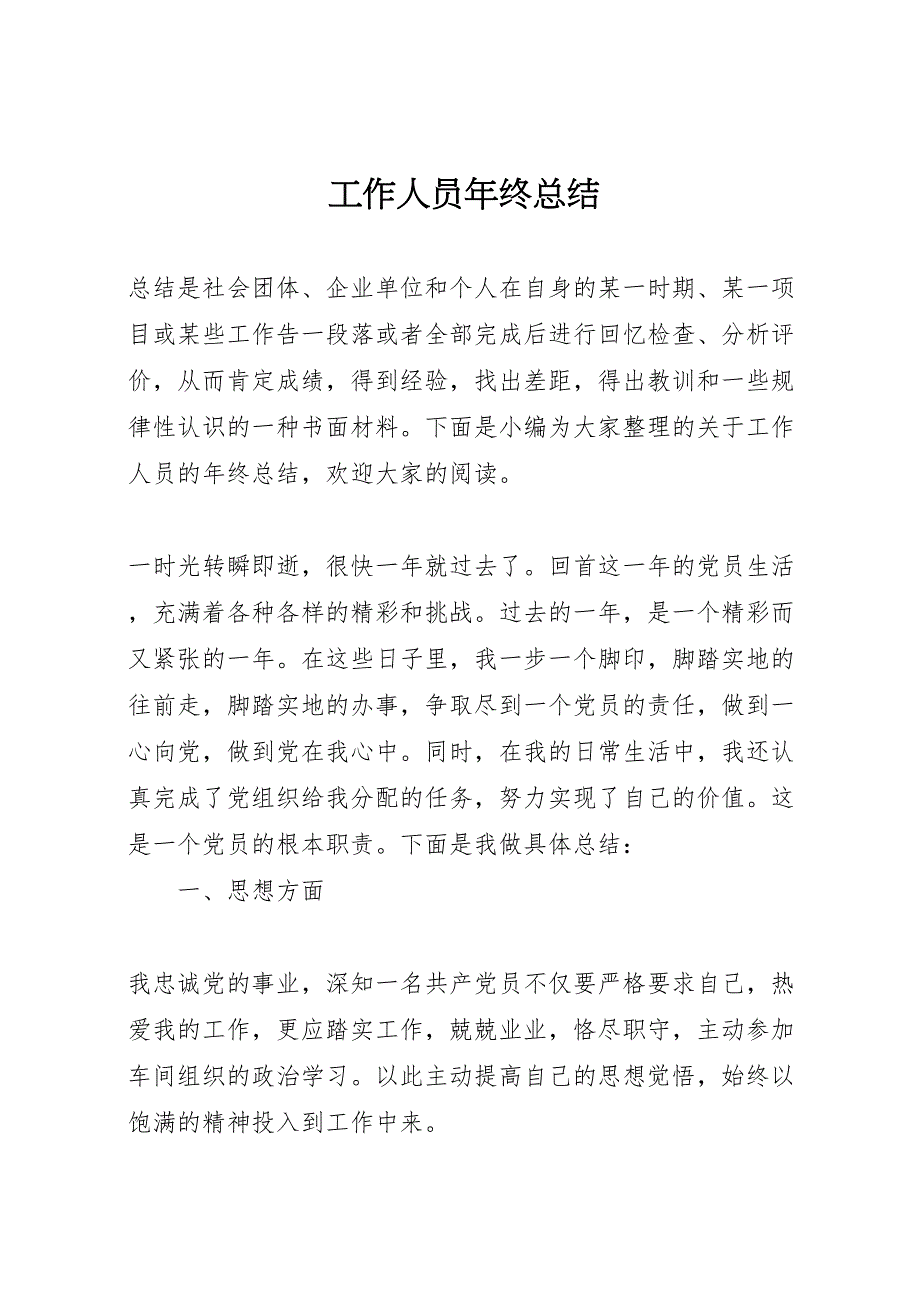 工作人员年终总结
总结是社会团体、企业单位和个人在自身的某一时期、某一项
目或某些工作告一段落或者全部完成后进行回忆检查、分析评
价，从而肯定成绩，得到经验，找出差距，得出教训和一些规
律性认识的一种书面材料。下面是小编为大家整理的关于工作
人员的年终总结，欢迎大家的阅读。
一时光转瞬即逝，很快一年就过去了。回首这一年的党员生活
，充满着各种各样的精彩和挑战。过去的一年，是一个精彩而
又紧张的一年。在这些日子里，我一步一个脚印，脚踏实地的
往前走，脚踏实地的办事，争取尽到一个党员的责任，做到一
心向党，做到党在我心中。同时，在我的日常生活中，我还认
真完成了党组织给我分配的任务，努力实现了自己的价值。这
是一个党员的根本职责。下面是我做具体总结：
一、思想方面
我忠诚党的事业，深知一名共产党员不仅要严格要求自己，热
爱我的工作，更应踏实工作，兢兢业业，恪尽职守，主动参加
车间组织的政治学习。以此主动提高自己的思想觉悟，始终以
饱满的精神投入到工作中来。